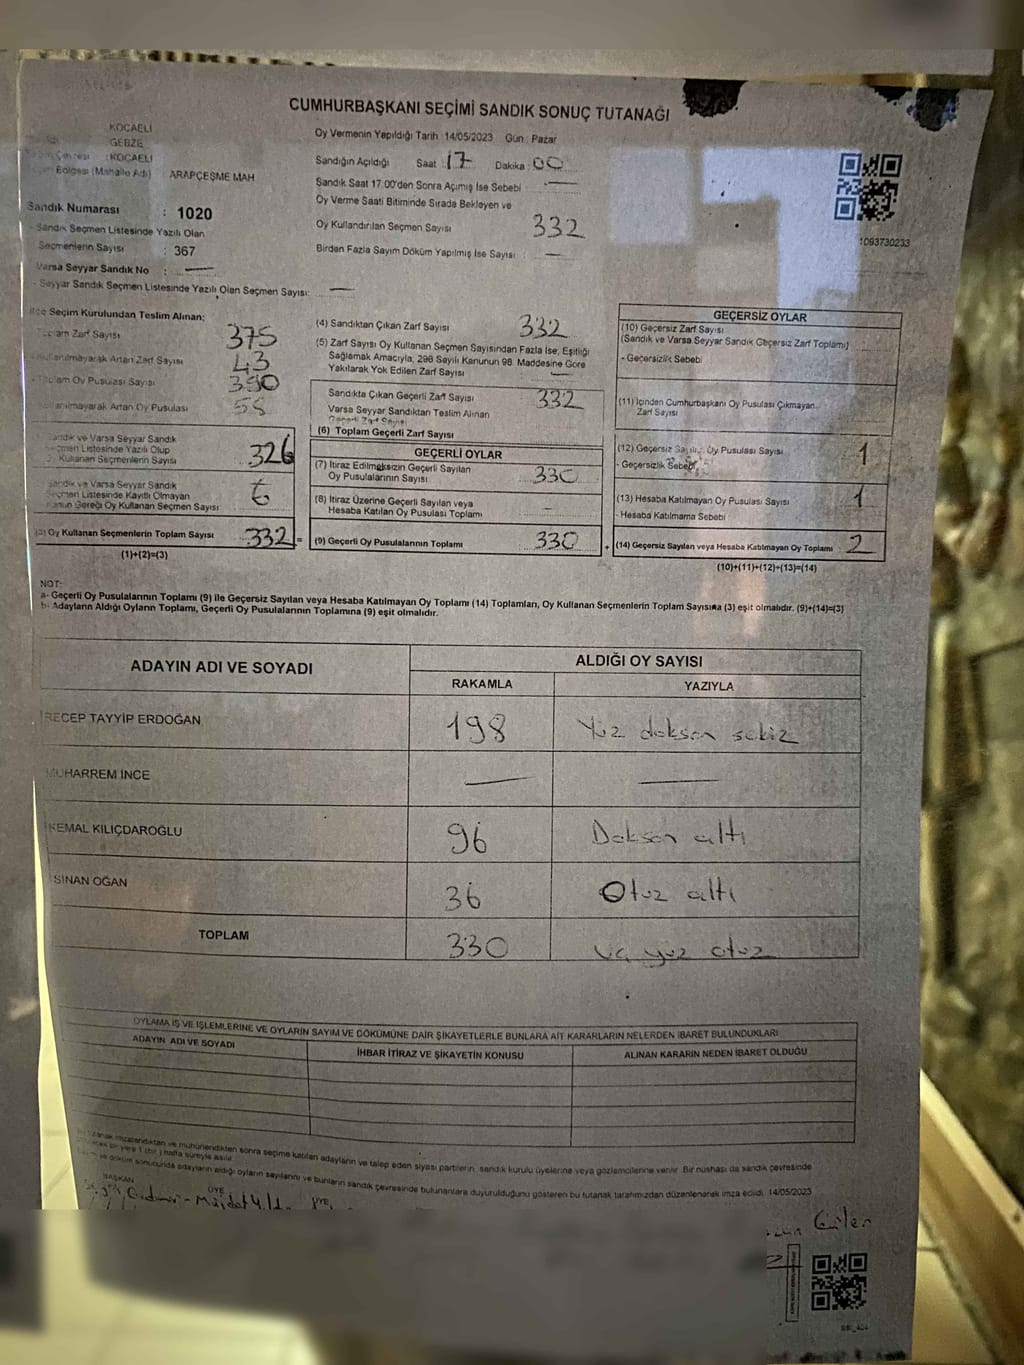 CUMHURBAŞKANI SEÇİMİ SANDIK SONUÇ TUTANAĞI
KOCAELİ
GEBZE
KOCAELİ
Bölgesi (Mahalle Adı) ARAPÇEŞME MAH
Sandık Numarası : 1020
Sandık Seçmen Listesinde Yazılı Olan
Seçmenlerin Sayısı : 367
Varsa Seyyar Sandık No : —
- Seyyar Sandık Seçmen Listesinde Yazılı Olan Seçmen Sayısı: —
Oy Vermenin Yapıldığı Tarih 14/05/2023 Gün : Pazar
Sandığın Açıldığı Saat : 17 Dakika : 00
Sandık Saat 17:00'den Sonra Açımış İse Sebebi —
Oy Verme Saati Bitiminde Sırada Bekleyen ve
Oy Kullandırılan Seçmen Sayısı 332
Birden Fazla Sayım Döküm Yapılmış İse Sayısı : —
1093730233
Seçim Kurulundan Teslim Alınan:
Zarf Sayısı 375
Kullanılmayarak Artan Zarf Sayısı 43
- Toplam Oy Pusulası Sayısı
Kullanılmayarak Artan Oy Pusulası
Sandık ve Varsa Seyyar Sandık
Seçmen Listesinde Yazılı Olup
Kullanan Seçmenlerin Sayısı 326
Sandık ve Varsa Seyyar Sandık
Seçmen Listesinde Kayıtlı Olmayan
Gereği Oy Kullanan Seçmen Sayısı 6
(3) Oy Kullanan Seçmenlerin Toplam Sayısı 332 =
(1)+(2)=(3)
(4) Sandıktan Çıkan Zarf Sayısı 332
(5) Zarf Sayısı Oy Kullanan Seçmen Sayısından Fazla İse, Eşitliği
Sağlamak Amacıyla, 298 Sayılı Kanunun 98. Maddesine Göre
Yakılarak Yok Edilen Zarf Sayısı —
Sandıkta Çıkan Geçerli Zarf Sayısı 332
Varsa Seyyar Sandıktan Teslim Alınan
Geçerli Zarf Sayısı
(6) Toplam Geçerli Zarf Sayısı
GEÇERLİ OYLAR
(7) İtiraz Edilmeksizin Geçerli Sayılan
Oy Pusulalarının Sayısı 330
(8) İtiraz Üzerine Geçerli Sayılan veya
Hesaba Katılan Oy Pusulası Toplamı —
(9) Geçerli Oy Pusulalarının Toplamı 330 +
GEÇERSİZ OYLAR
(10) Geçersiz Zarf Sayısı
(Sandık ve Varsa Seyyar Sandık Geçersiz Zarf Toplamı)
- Geçersizlik Sebebi
(11) İçinden Cumhurbaşkanı Oy Pusulası Çıkmayan
Zarf Sayısı
(12) Geçersiz Sayılan Oy Pusulası Sayısı 1
- Geçersizlik Sebebi
(13) Hesaba Katılmayan Oy Pusulası Sayısı 1
- Hesaba Katılmama Sebebi
(14) Geçersiz Sayılan veya Hesaba Katılmayan Oy Toplamı 2
(10)+(11)+(12)+(13)=(14)
NOT:
a- Geçerli Oy Pusulalarının Toplamı (9) ile Geçersiz Sayılan veya Hesaba Katılmayan Oy Toplamı (14) Toplamları, Oy Kullanan Seçmenlerin Toplam Sayısına (3) eşit olmalıdır. (9)+(14)=(3)
b- Adayların Aldığı Oyların Toplamı, Geçerli Oy Pusulalarının Toplamına (9) eşit olmalıdır.
ADAYIN ADI VE SOYADI ALDIĞI OY SAYISI
RAKAMLA YAZIYLA
RECEP TAYYİP ERDOĞAN 198 Yüz doksan sekiz
MUHARREM İNCE — —
KEMAL KILIÇDAROĞLU 96 Doksan altı
SİNAN OĞAN 36 Otuz altı
TOPLAM 330 üç yüz otuz
OYLAMA İŞ VE İŞLEMLERİNE VE OYLARIN SAYIM VE DÖKÜMÜNE DAİR ŞİKAYETLERLE BUNLARA AİT KARARLARIN NELERDEN İBARET BULUNDUKLARI
ADAYIN ADI VE SOYADI İHBAR İTİRAZ VE ŞİKAYETİN KONUSU ALINAN KARARIN NEDEN İBARET OLDUĞU
imzalandıktan ve mühürlendikten sonra seçime katılan adayların ve talep eden siyasi partilerin, sandık kurulu üyelerine veya gözlemcilerine verilir. Bir nüshası da sandık çevresinde
hafta süreyle asılır.
ve döküm sonucunda adayların aldığı oyların sayılarını ve bunların sandık çevresinde bulunanlara duyurulduğunu gösteren bu tutanak tarafımızdan düzenlenerek imza edildi. 14/05/2023
BAŞKAN ÜYE ÜYE